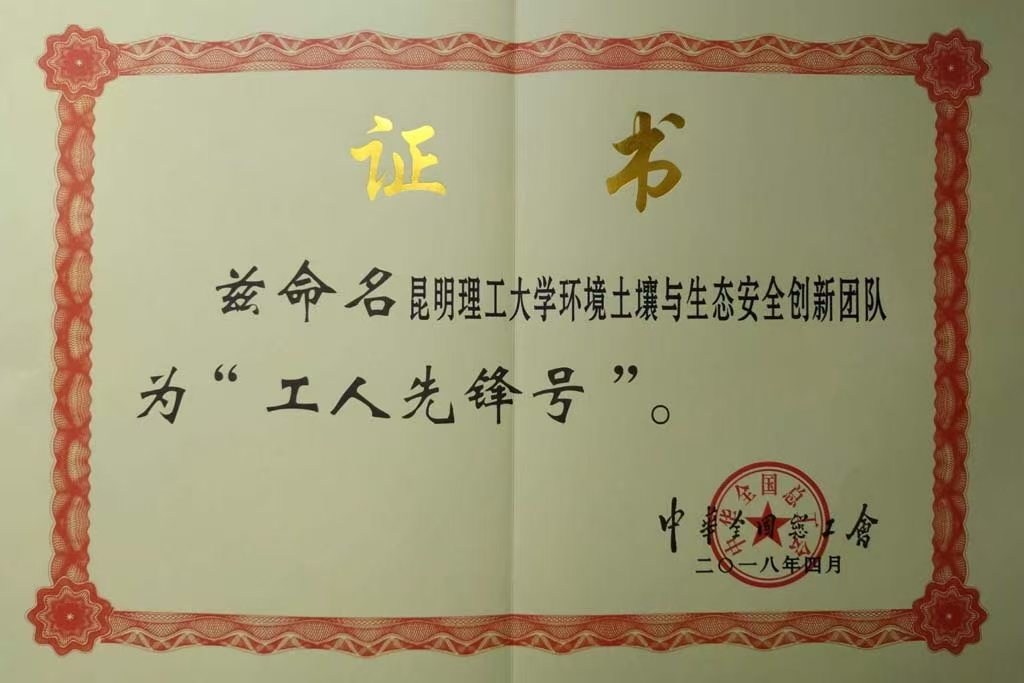 证书
兹命名昆明理工大学环境土壤与生态安全创新团队
为“工人先锋号”。
中华全国总工会
中華全国總工會
二〇一八年四月